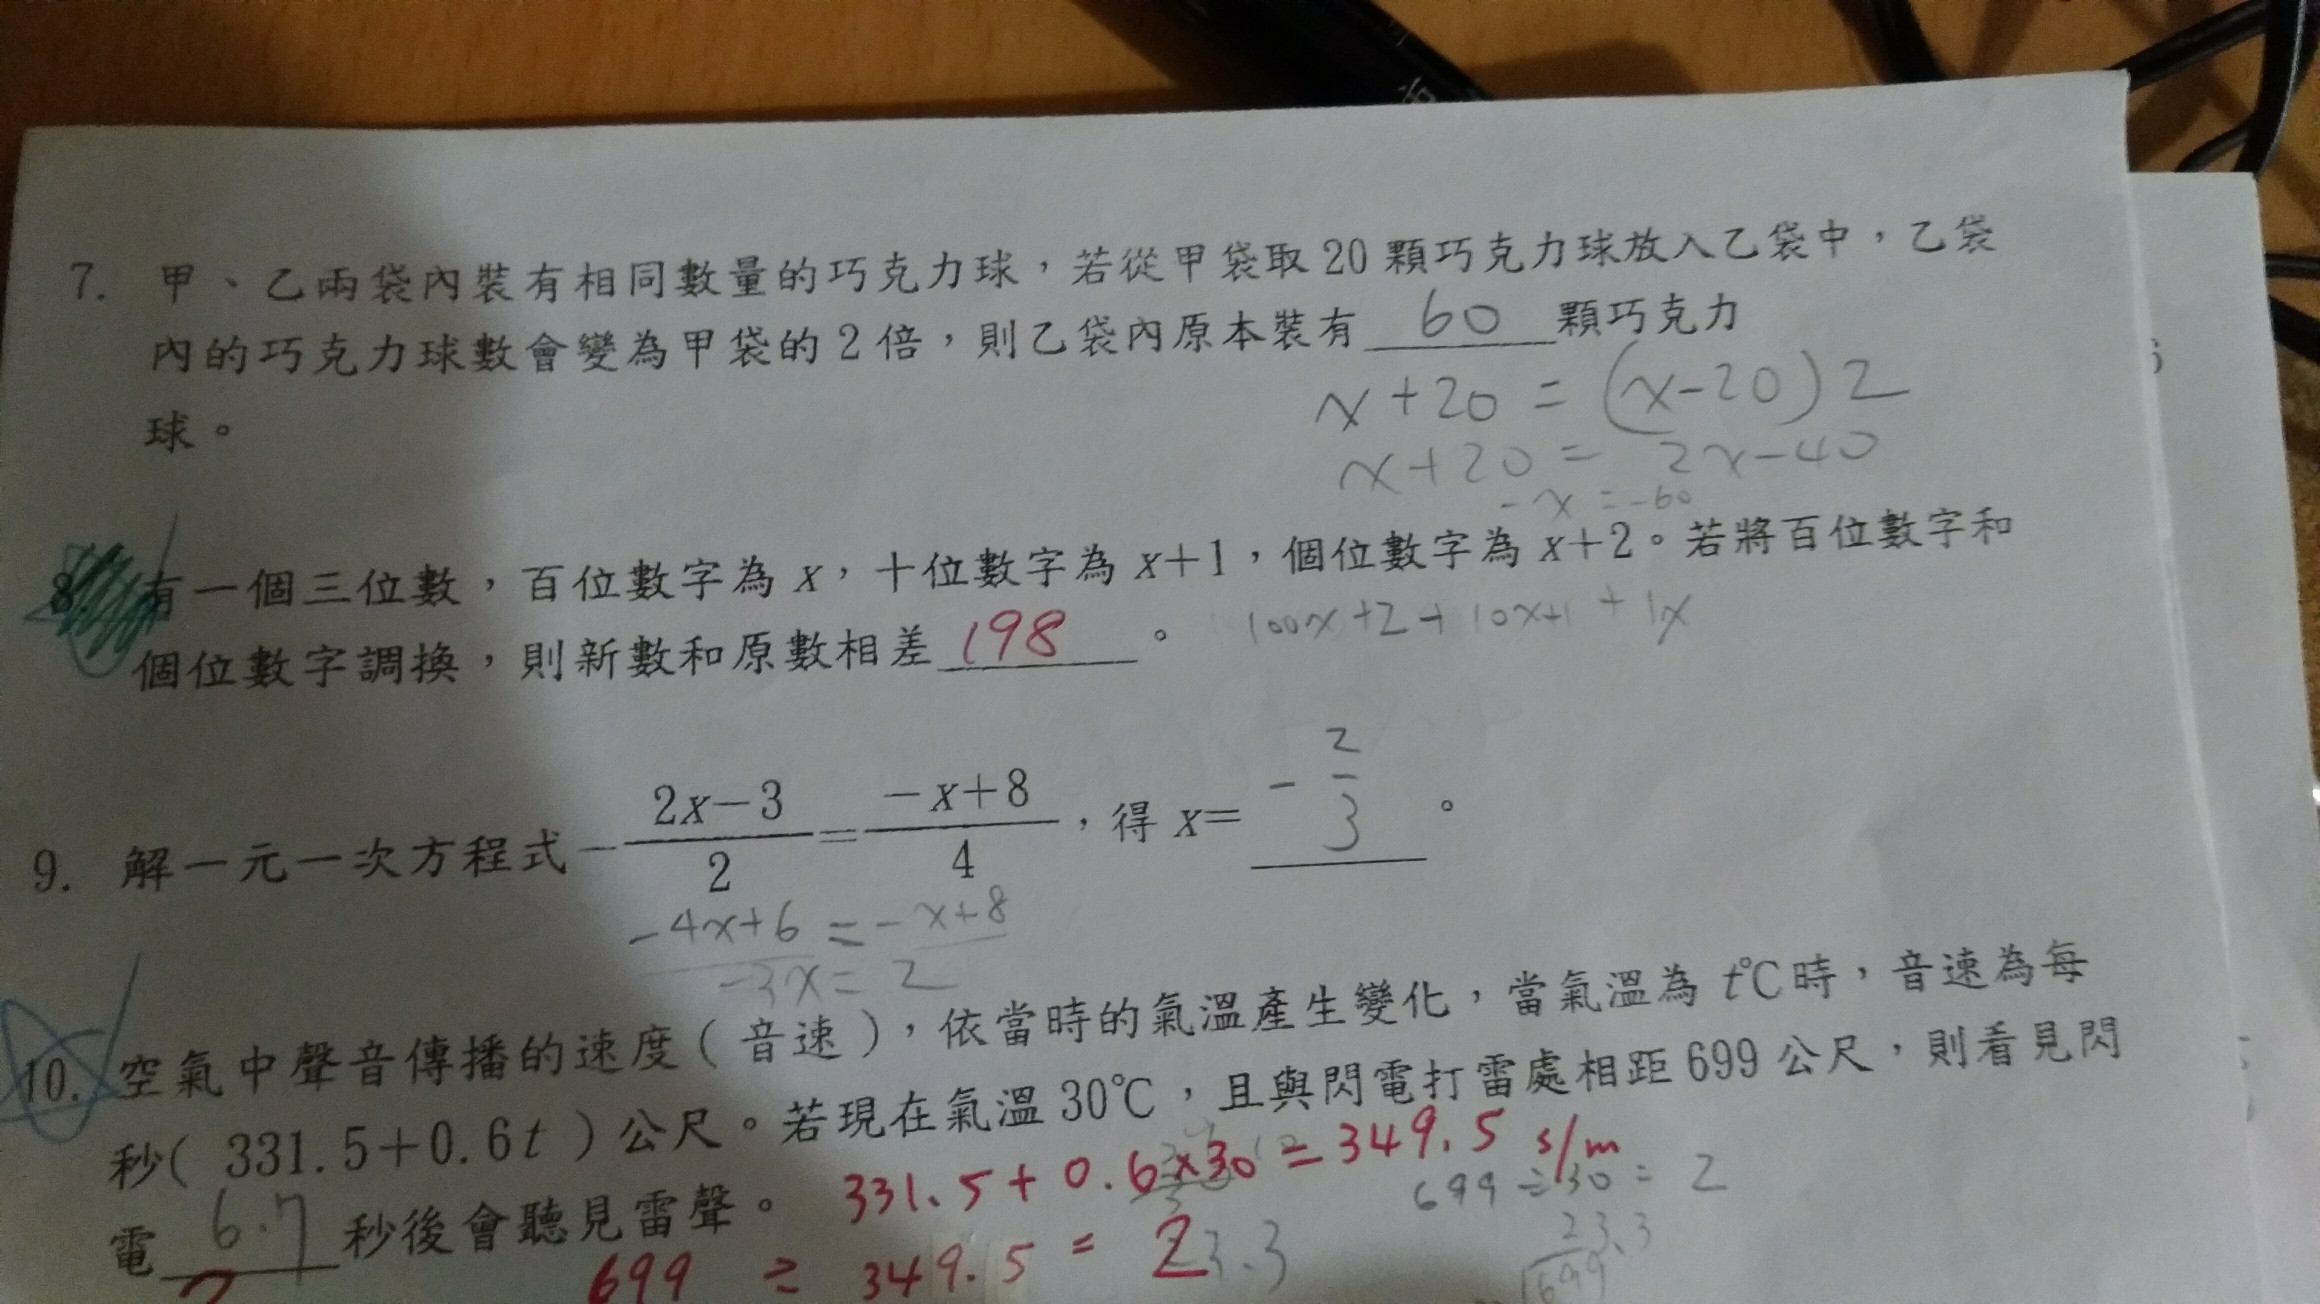 7. 甲、乙兩袋內裝有相同數量的巧克力球，若從甲袋取20顆巧克力球放入乙袋中，乙袋
內的巧克力球數會變為甲袋的2倍，則乙袋內原本裝有 60 顆巧克力
球。
x+20=(x-20)2
x+20= 2x-40
-x=-60
8. 有一個三位數，百位數字為x，十位數字為x+1，個位數字為x+2。若將百位數字和
個位數字調換，則新數和原數相差 198 。
100x+2+10x+1+1x
9. 解一元一次方程式-\frac{2x-3}{2}=\frac{-x+8}{4}，得x= -\frac{2}{3} 。
-4x+6=-x+8
-3x=2
10. 空氣中聲音傳播的速度（音速），依當時的氣溫產生變化，當氣溫為t℃時，音速為每
秒( 331.5+0.6t )公尺。若現在氣溫30℃，且與閃電打雷處相距699公尺，則看見閃
電 6.7 秒後會聽見雷聲。
331.5+0.6×30=349.5 s/m
699÷30=2
23.3
699
699÷349.5=2
3.3